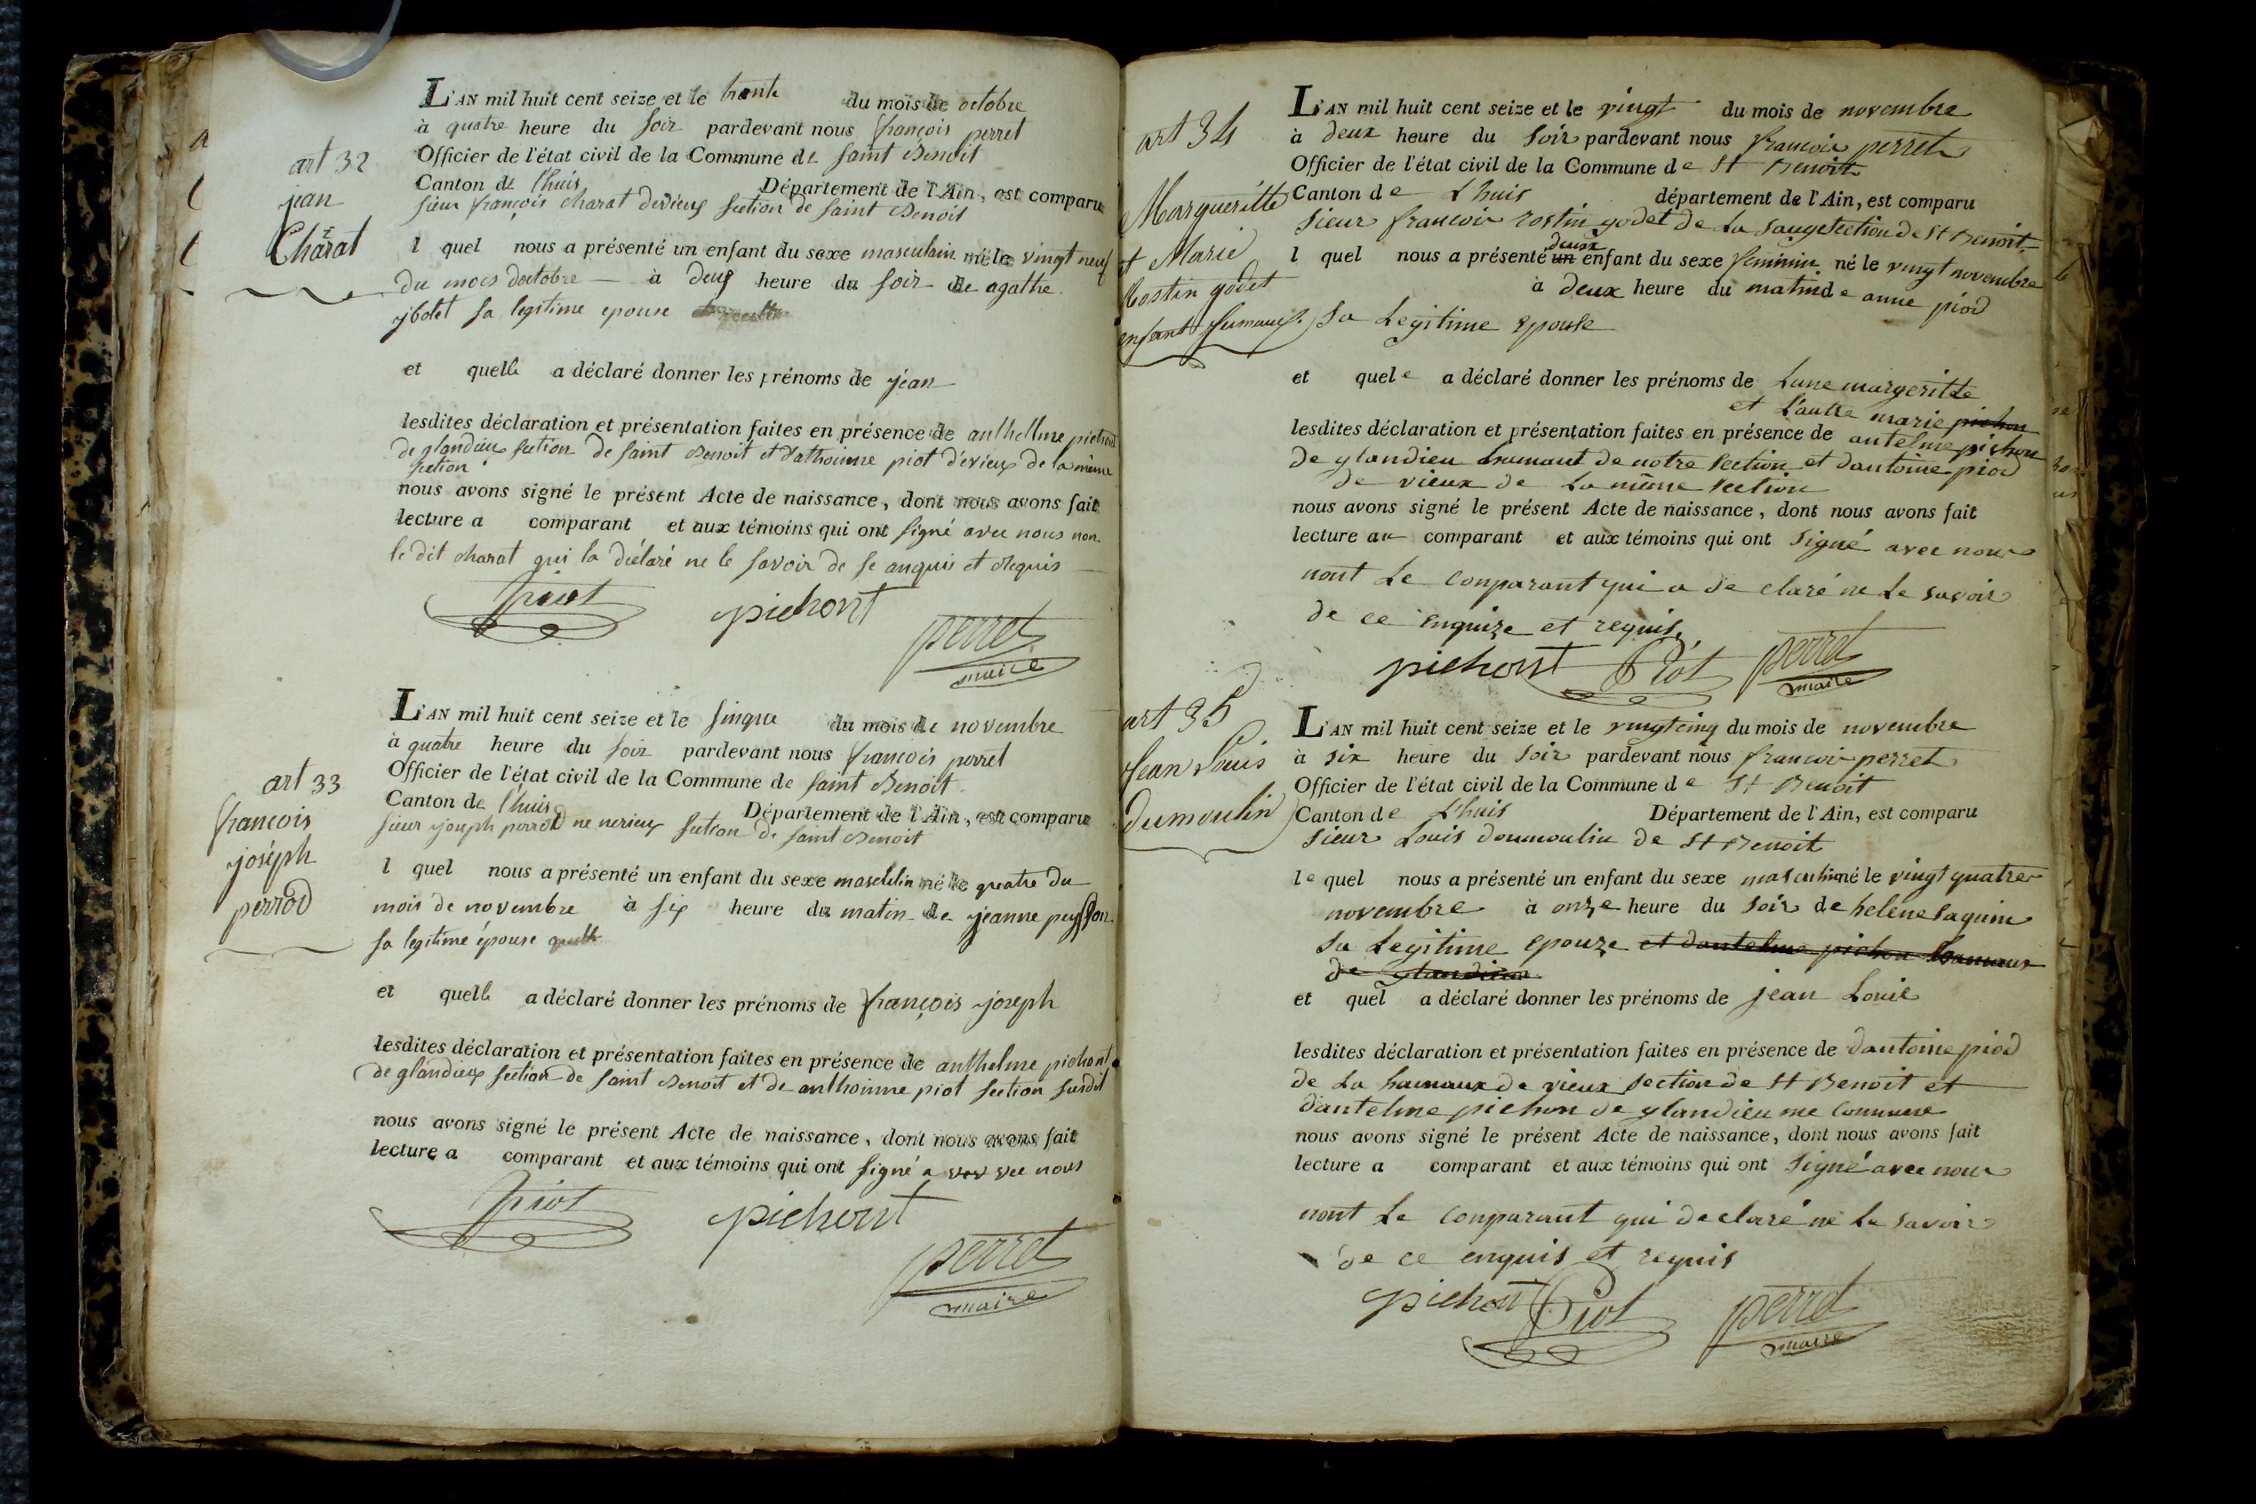 art 32
jean
Charat
L'AN mil huit cent seize et le trente du mois de octobre
à quatre heure du soir pardevant nous françois perret
Officier de l'état civil de la Commune de saint Benoit
Canton de l'huis Département de l'Ain, est comparu
sieur françois charat devieux section de saint Benoit
l quel nous a présenté un enfant du sexe masculain né le vingt neuf
du mois doctobre à deux heure du soir de agathe
sa legitime epouse
et quelle a déclaré donner les prénoms de jean
lesdites déclaration et présentation faites en présence de anthelme pichont
de glandieu section de saint Benoit et d'athoinne piot d'évieux de la même
section
nous avons signé le présent Acte de naissance, dont nous avons fait
lecture a comparant et aux témoins qui ont signé avec nous non
le dit charat qui la déclaré ne le savoir de se anquis et requis
piot pichont perret
maire
art 33
françois
joséph
perrod
L'AN mil huit cent seize et le sinque du mois de novembre
à quatre heure du soir pardevant nous françois perret
Officier de l'état civil de la Commune de saint Benoit
Canton de l'huis Département de l'Ain, est comparu
sieur joseph perrod section de saint Benoit
l quel nous a présenté un enfant du sexe masculin né le quatre du
mois de novembre à six heure du matin de jeanne peysson
sa legitime épouse quelle
et quelle a déclaré donner les prénoms de françois joseph
lesdites déclaration et présentation faites en présence de anthelme pichont
de glandieux section de saint Benoit et de anthoinne piot section susdit
nous avons signé le présent Acte de naissance, dont nous avons fait
lecture a comparant et aux témoins qui ont signé avec nous
piot pichont perret
maire
art 34
Marguerite
et Marie
Rostin godet
L'AN mil huit cent seize et le vingt du mois de novembre
à deux heure du soir pardevant nous francois perret
Officier de l'état civil de la Commune de St Benoit
Canton de Lhuis département de l'Ain, est comparu
sieur francois rostin godet de La sauge section de St Benoit
l quel nous a présenté un deux enfant du sexe feminin né le vingt novembre
à deux heure du matin de anne piod
sa Legitime epouse
et quele a déclaré donner les prénoms de Lune margeritte
et Lautre marie pichon
lesdites déclaration et présentation faites en présence de antelme pichon
de glandieu hamaut de notre section et dantoine piod
de vieux de La même section
nous avons signé le présent Acte de naissance, dont nous avons fait
lecture au comparant et aux témoins qui ont signé avec nous
nont Le conparant qui a de claré ne Le savoir
de ce enquize et requis
pichont Piot perret
maire
art 35
Jean Louis
dumoulin
L'AN mil huit cent seize et le vingtcinq du mois de novembre
à six heure du soir pardevant nous francois perret
Officier de l'état civil de la Commune de St Benoit
Canton de Lhuis Département de l'Ain, est comparu
sieur Louis doumoulin de St Benoit
le quel nous a présenté un enfant du sexe masculin né le vingt quatre
novembre à onze heure du soir de helene saguin
sa Legitime epouze et dantelme pichon hamaux
de glandieu
et quel a déclaré donner les prénoms de jean Louis
lesdites déclaration et présentation faites en présence de dantoine piod
de La hamaux de vieux section de St Benoit et
dantelme pichon de glandieu me commune
nous avons signé le présent Acte de naissance, dont nous avons fait
lecture a comparant et aux témoins qui ont signé avec nous
nont Le conparant qui declaré ne Le savoir
de ce enquis et requis
pichont Piot perret
maire